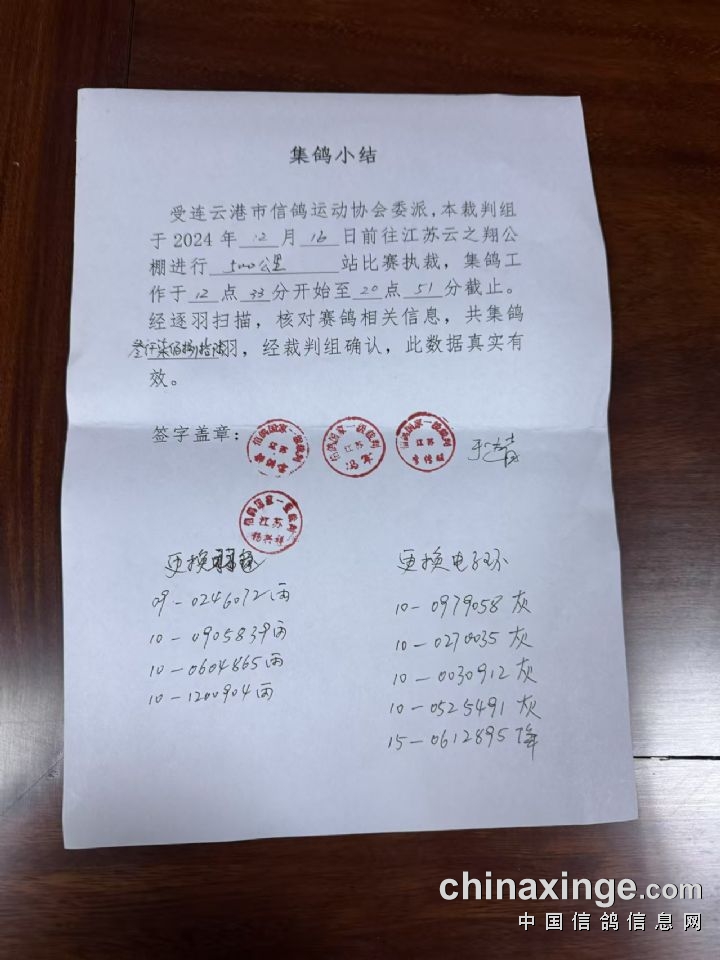 集鸽小结
受连云港市信鸽运动协会委派,本裁判组
于2024年12月16日前往江苏云之翔公
棚进行500公里站比赛执裁，集鸽工
作于12点33分开始至20点51分截止。
经逐羽扫描，核对赛鸽相关信息，共集鸽
叁仟柒佰捌拾羽，经裁判组确认，此数据真实有
效。
签字盖章：
信鸽国家一级裁判
江苏
信鸽国家一级裁判
江苏
信鸽国家一级裁判
江苏
信鸽国家一级裁判
江苏
杨兴祥
更换
更换电子环
09-0246072雨
10-0905839雨
10-0604865雨
10-1200904雨
10-0979058灰
10-0270035灰
10-0030912灰
10-0525491灰
15-0612895降
chinaxinge.com
中国信鸽信息网